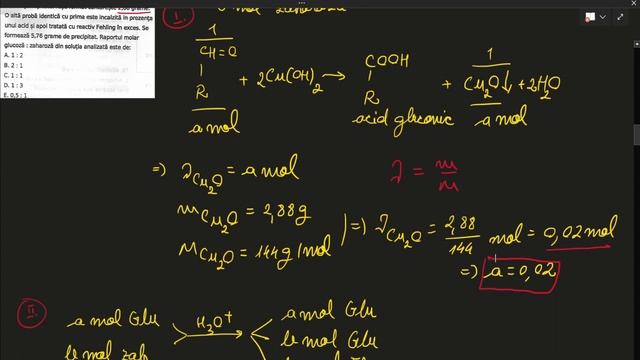 2,88 grame.
O altă probă identică cu prima este încălzită în prezența
unui acid și apoi tratată cu reactiv Fehling în exces. Se
formează 5,76 grame de precipitat. Raportul molar
glucoză : zaharoză din soluția analizată este de:
A. 1 : 2
B. 2 : 1
C. 1 : 1
D. 1 : 3
E. 0,5 : 1
I.
1
CH=O
R
a mol
+ 2Cu(OH)2 →
COOH
R
acid gluconic
+
1
Cu2O↓ + 2H2O
a mol
=) νCu2O = a mol
mCu2O = 2,88g
MCu2O = 144g/mol
ν = m/m
=) νCu2O = 2,88/144 mol = 0,02 mol
=) a = 0,02
II.
a mol Glu
b mol zah
H3O+
a mol Glu
b mol Glu